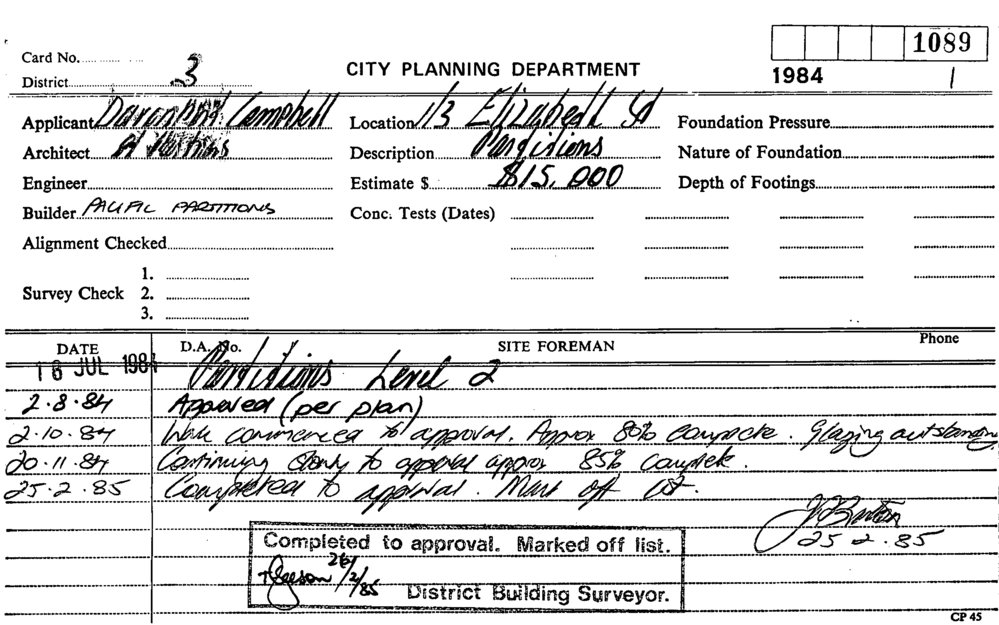 Card No. 3
District
CITY PLANNING DEPARTMENT
1089
1984 1
Applicant Davenport Campbell
Location 1/3 Elizabeth St
Foundation Pressure
Architect
Description Partitions
Nature of Foundation
Engineer
Estimate $ $15,000
Depth of Footings
Builder PACIFIC PARTITIONS
Conc. Tests (Dates)
Alignment Checked
Survey Check
1.
2.
3.
DATE D.A. No. SITE FOREMAN Phone
16 JUL 1984 Partitions Level 2
2.8.84 Approved (per plan)
2.10.84 Work commenced to approval. Approx 80% complete. Glazing outstanding
20.11.84 Continuing slowly to approval approx 85% complete.
25.2.85 Completed to approval. Mark off list.
25.2.85
Completed to approval. Marked off list.
26/2/85
District Building Surveyor.
CP 45